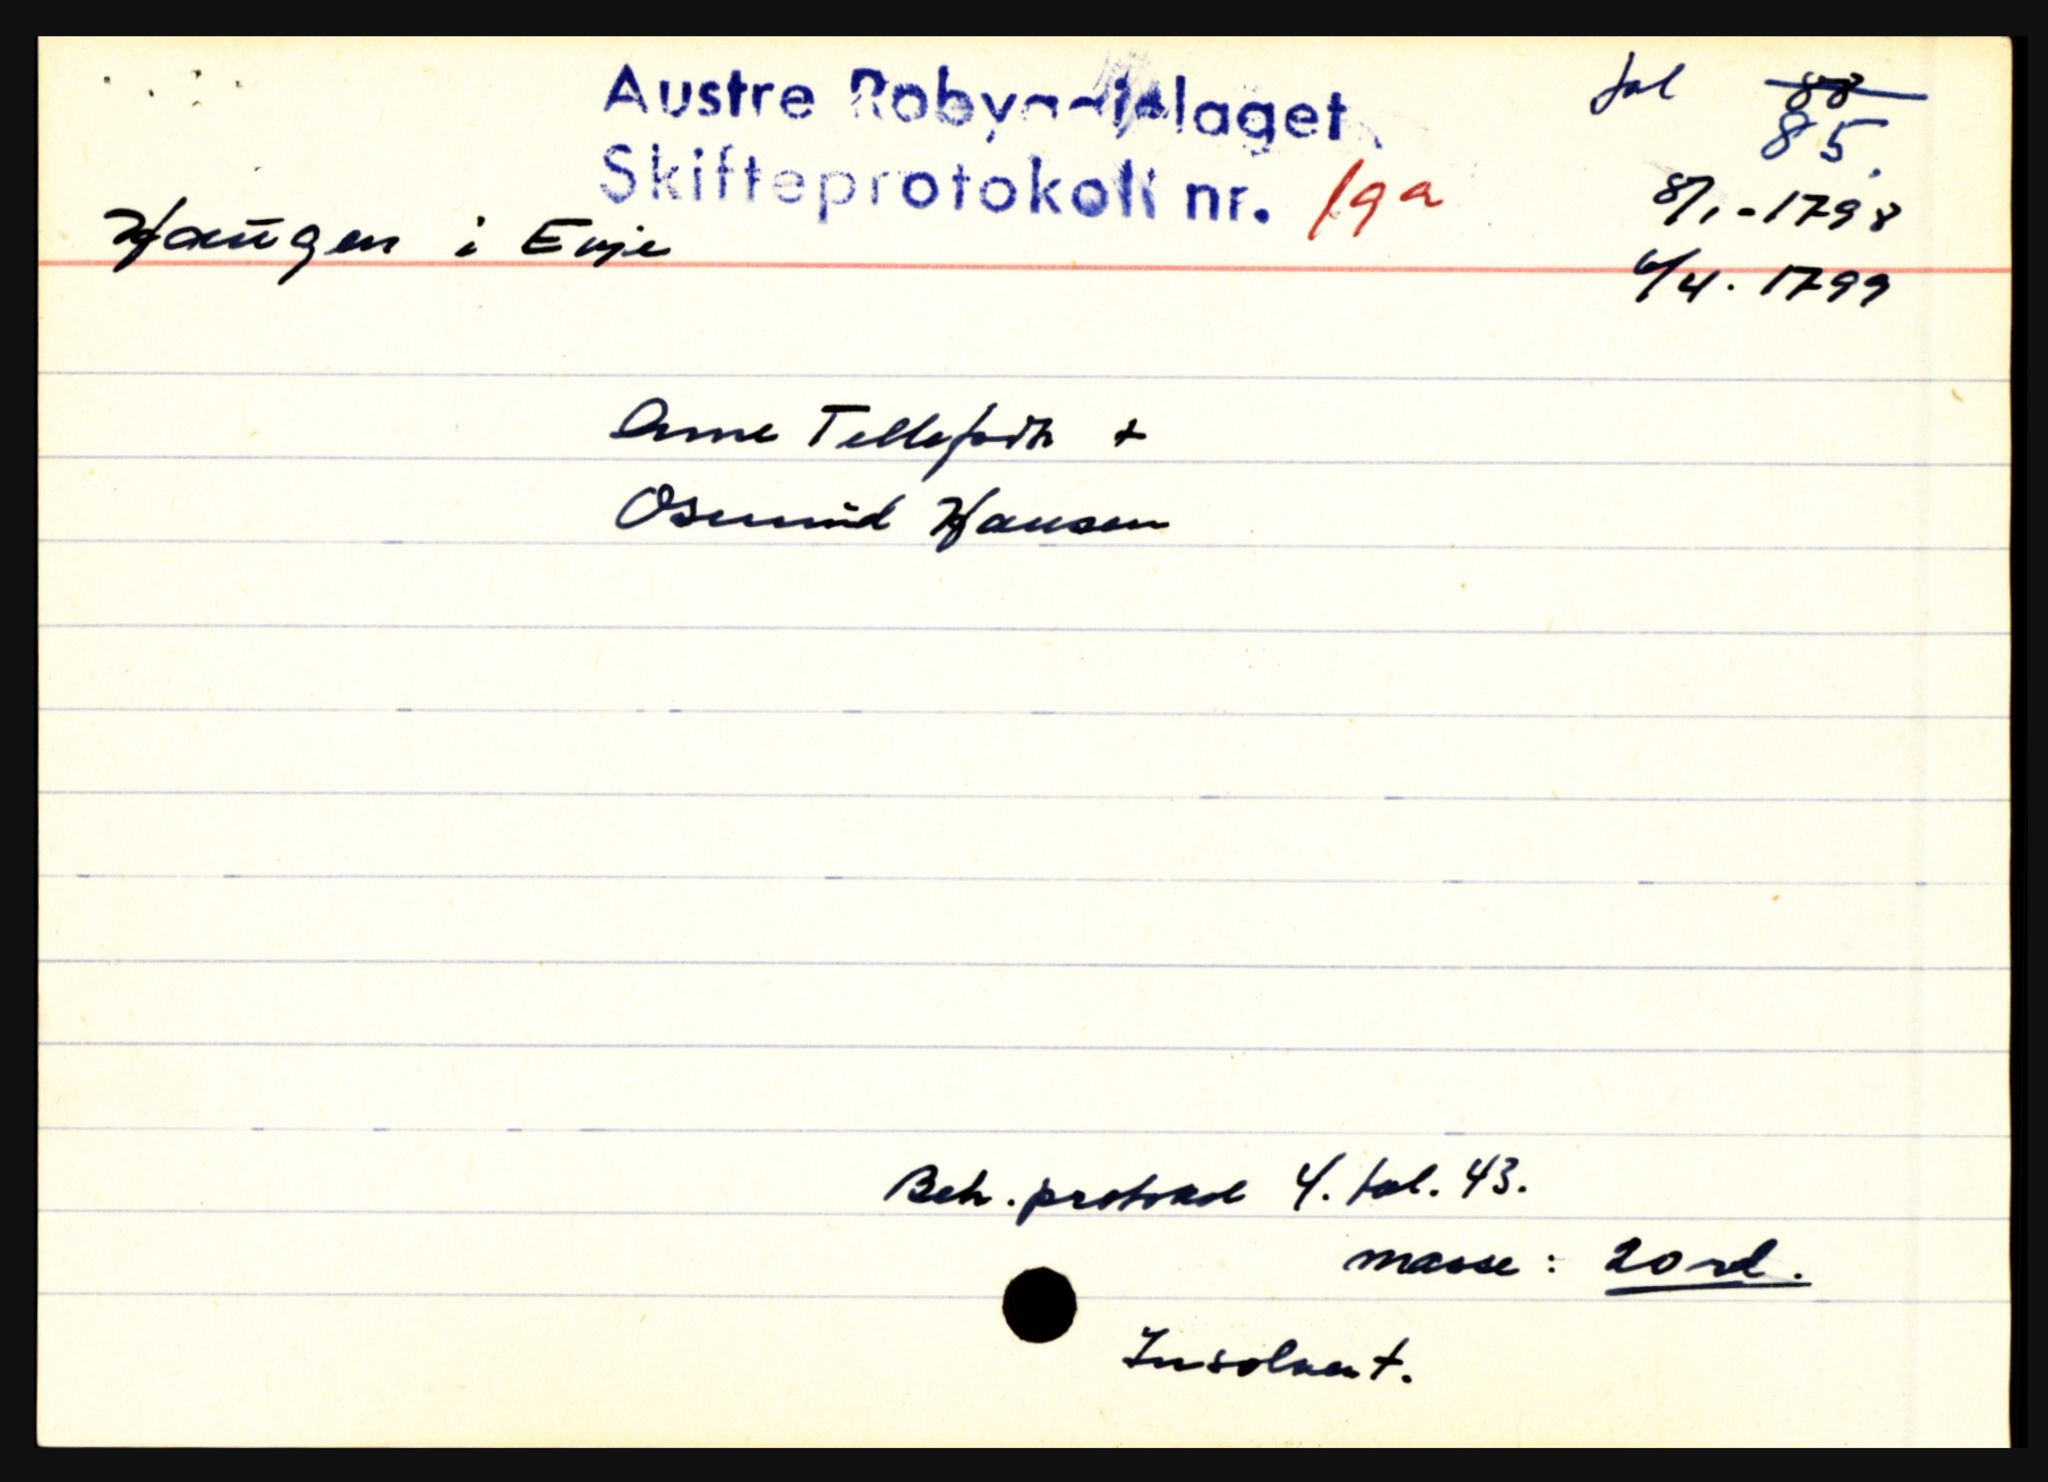 Austre Robyggjelaget fol ~~88~~
85.
Skifteprotokoll nr. 19a 8/1 - 1798
Haugen i Evje
6/4. 1799
Anne Tellefsdtr +
Osmund Hansen
Beh. protokol 4. fol. 43.
masse: 20 rd.
Insolvent.